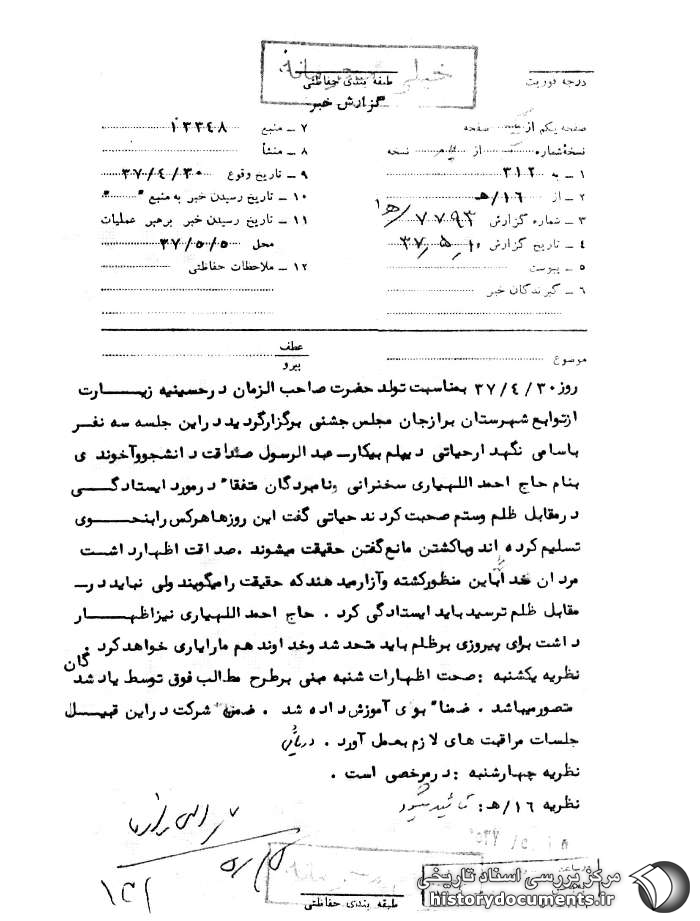 خیلی محرمانه
درجه فوریت
طبقه بندی حفاظتی
گزارش خبر
صفحه یکم از یک صفحه
نسخهٔ شماره از نسخه
۱ ـ به ۳۱۲
۲ ـ از ۱۶/هـ
۳ ـ شماره گزارش ۷۷۹۳/ه‍ ۱
۴ ـ تاریخ گزارش ۳۷/۵/۱۰
۵ ـ پیوست
۶ ـ گیرندگان خبر
۷ ـ منبع ۱۳۳۴۸
۸ ـ منشأ
۹ ـ تاریخ وقوع ۳۷/۴/۳۰
۱۰ ـ تاریخ رسیدن خبر به منبع "
۱۱ ـ تاریخ رسیدن خبر برهبر عملیات
محل ۳۷/۵/۵
۱۲ ـ ملاحظات حفاظتی
موضوع
عطف
پیرو
روز ۳۷/۴/۳۰ بمناسبت تولد حضرت صاحب الزمان درحسینیه زیـــارت
ازتوابع شهرستان برازجان مجلس جشنی برگزارگردید دراین جلسه سه نفـر
باسامی نگهدارحیاتی دیپلم بیکارــ عبدالرسول صداقت دانشجووآخوندی
بنام حاج احمداللهیاری سخنرانی ونامبردگان متفقاً درمورد ایستادگــی
درمقابل ظلم وستم صحبت کردند حیاتی گفت این روزهاهرکس رابنحــوی
تسلیم کرده اند وباکشتن مانع گفتن حقیقت میشوند .صداقت اظهارداشـت
مردان خدا باین منظورکشته وآزارمیدهندکه حقیقت رامیگویند ولی نباید درــ
مقابل ظلم ترسید باید ایستادگی کرد . حاج احمداللهیاری نیزاظهــار
داشت برای پیروزی برظلم باید متحد شد وخداوند هم مارایاری خواهد کرد
نظریه یکشنبه : صحت اظهارات شنبه مبنی برطرح مطالب فوق توسط یاد شدگان
متصورمیباشد . ضمناً بوی آموزش داده شد . ضمن شرکت دراین قبیـل
جلسات مراقبت های لازم بعمل آورد .
نظریه چهارشنبه : درمرخصی است .
نظریه ۱۶/هـ: تائید میگردد
طبقه بندی حفاظتی
مرکز بررسی اسناد تاریخی
historydocuments.ir